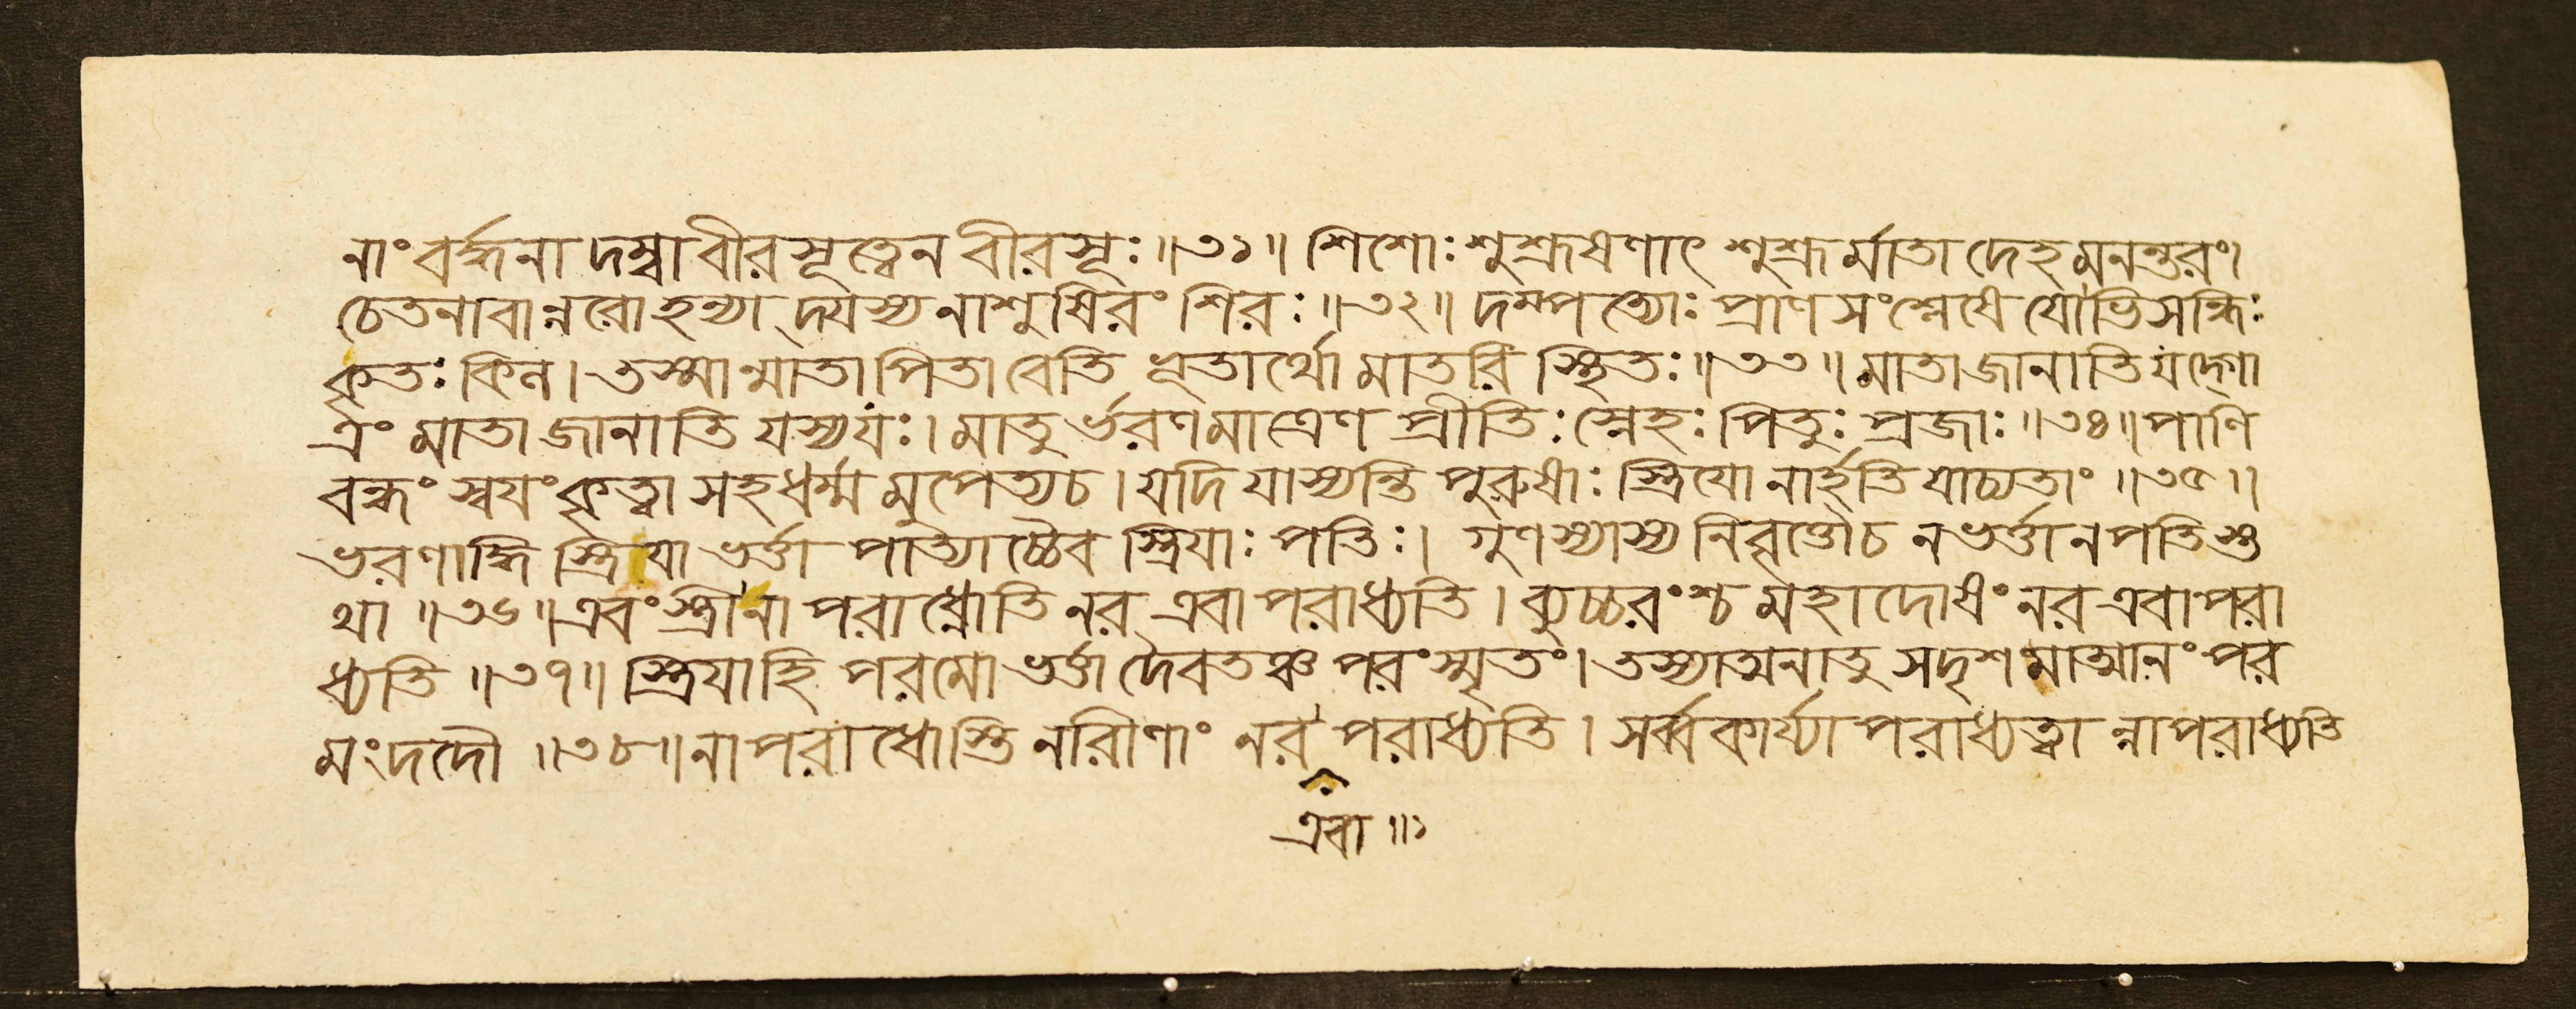 নাং বর্দ্ধনাদম্বা বীরসূত্বেন বীরসূঃ ॥৩১॥ শিশোঃ শুশ্রূষণাৎ শুশ্রূর্মাতা দেহমনন্তরং।
চেতনাবান্নরো হন্যাদ্যস্য নাশুষিরং শিরঃ ॥৩২॥ দম্পত্যোঃ প্রাণসংশ্লেষে যোভিসন্ধিঃ
কৃতঃ কিল। তস্মান্মাতা পিতা বেতি ভূতার্থো মাতরি স্থিতঃ ॥৩৩॥ মাতা জানাতি যদ্গো
ত্রং মাতা জানাতি যস্য যঃ। মাতুর্ভরণমাত্রেণ প্রীতিঃ স্নেহঃ পিতুঃ প্রজাঃ ॥৩৪॥ পাণি
বন্ধং স্বয়ং কৃত্বা সহধর্ম্মমুপেত্য চ। যদি যাস্যন্তি পুরুষাঃ স্ত্রিয়ো নার্হতি যাচ্যতাং ॥৩৫॥
ভরণাদ্ধি স্ত্রিয়া ভর্ত্তা পাত্যাচ্চৈব স্ত্রিয়াঃ পতিঃ। গুণস্যাস্য নিবৃত্তৌ চ ন ভর্ত্তা ন পতিস্ত
থা ॥৩৬॥ এবং স্ত্রী না পরাধ্নোতি নর এবাপরাধ্যতি। ব্যুচ্চরংশ্চ মহাদোষং নর এবাপরা
ধ্যতি ॥৩৭॥ স্ত্রিয়া হি পরমো ভর্ত্তা দৈবতঞ্চ পরং স্মৃতং। তস্যাত্মনা তু সদৃশমাত্মানং পর
মং দদৌ ॥৩৮॥ নাপরাধোস্তি নরীণাং নর পরাধ্যতি। সর্ব্বকার্য্যাপরাধ্যত্বান্নাপরাধ্যতি
এবা ॥১